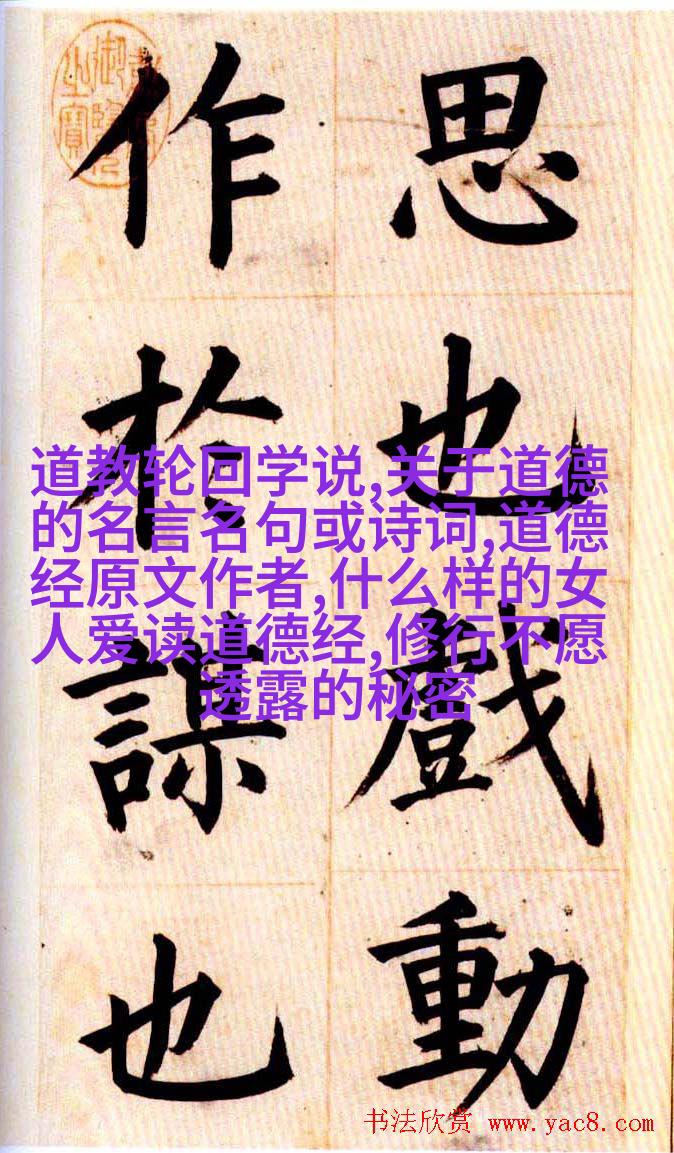 思也戲動
作於謀也
道教轮回学说,关于道德
的名言名句或诗词,道德
经原文作者,什么样的女
人爱读道德经,修行不愿
透露的秘密
书法欣赏 www.yac8.com